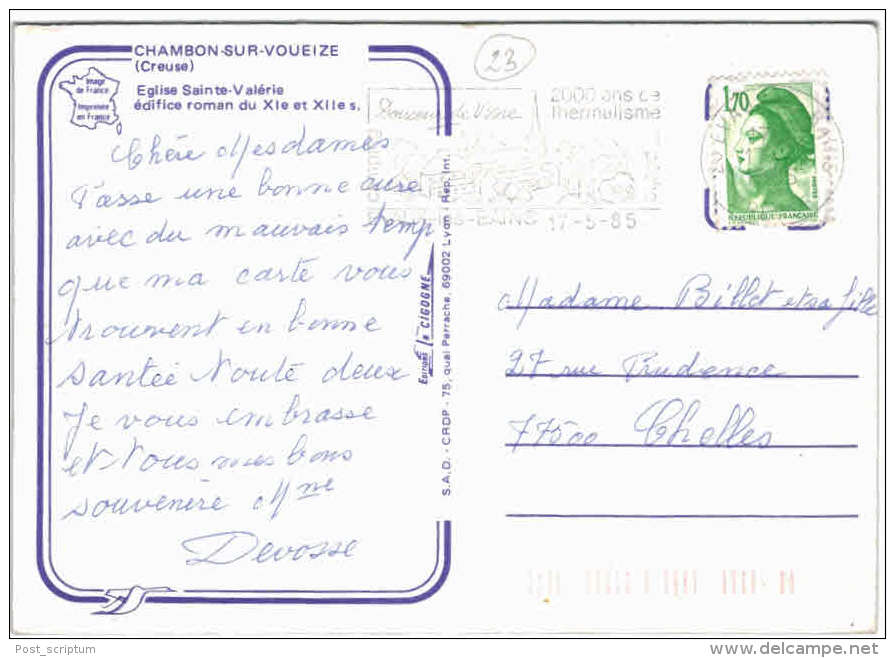 CHAMBON-SUR-VOUEIZE
(Creuse)
Eglise Sainte-Valérie
édifice roman du XIe et XIIe s.
Image
de France
Imprimée
en France
23
2000 ans de
thermalisme
BAINS 17-5-85
1,70
REPUBLIQUE FRANÇAISE
POSTES
Chère Mesdames
Passe une bonne cure
avec du mauvais temp
que ma carte vous
trouvent en bonne
santée toute deux
Je vous embrasse
et tous mes bons
souvenère Mme
Devosse
Editions la CIGOGNE
S.A.D. - CRDP - 75, quai Perrache, 69002 Lyon - Rep. Int.
Madame Billot et sa fille
27 rue Prudence
77500 Chelles
Post_scriptum
www.delcampe.net